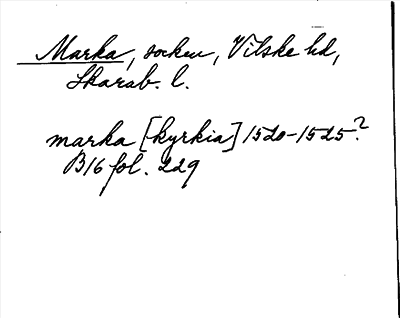 Marka, socken, Vilske hd,
Skarab. l.
marka [kyrkia] 1520-1525?
B16 fol. 229